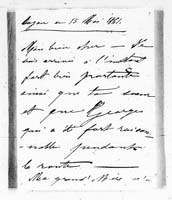 ce 15 Mai 1861.
Mon bien cher — Je
suis arrivé à l'instant
fort bien portant
ainsi que ta sœur
et que Georges
qui a été fort raison-
nable pendant
la route —
Ma grand' Mère n'a